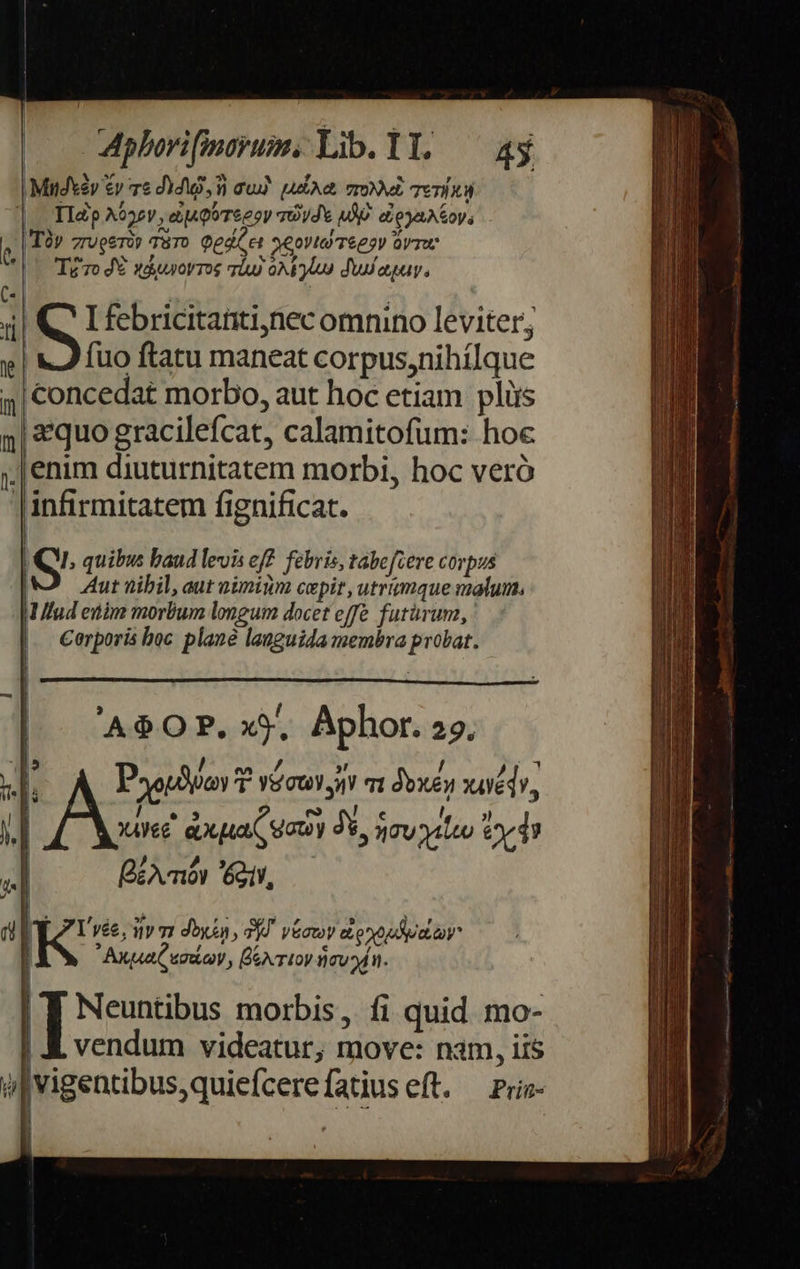 Aphoriſmorum. Lib. II. 45
Μηδὲν ἔν τε διδῷ, ἢ σὺν μάλα πολλὰ τετήκῃ
Πὰρ λόγον, ἀμφότερον τῶνδε μὲν ἀργαλέον.
Τὸν πυρετὸν τοῦτο φράζει χρονιώτερον ὄντα·
Τοῦτο δὲ κάμνοντος τὴν ὀλίγην δύναμιν.
SI febricitanti, nec omnino leviter,
ſuo ſtatu maneat corpus, nihilque
concedat morbo, aut hoc etiam plùs
æquo gracileſcat, calamitoſum: hoc
enim diuturnitatem morbi, hoc verò
infirmitatem ſignificat.
SI, quibus haud levis eſt febris, tabeſcere corpus
Aut nihil, aut nimiùm cœpit, utrúmque malum.
Illud enim morbum longum docet eſſe futùrum,
Corporis hoc planè languida membra probat.
ἈΦΟΡ. κθ′. Aphor. 29.
Ἀρχομένων τ νούσων, ἤν τι δοκέῃ κινέειν,
κίνεε· ἀκμαζουσῶν δὲ, ἡσυχίην ἔχειν
βέλτιόν ἐστιν,
Κίνεε, ἤν τι δοκέῃ, τῶν νόσων ἀρχομενάων·
Ἀκμαζουσάων, βέλτιον ἡσυχίη.
INeuntibus morbis, ſi quid mo-
vendum videatur, move: nam, iis
vigentibus, quieſcere ſatius eſt. Prin-